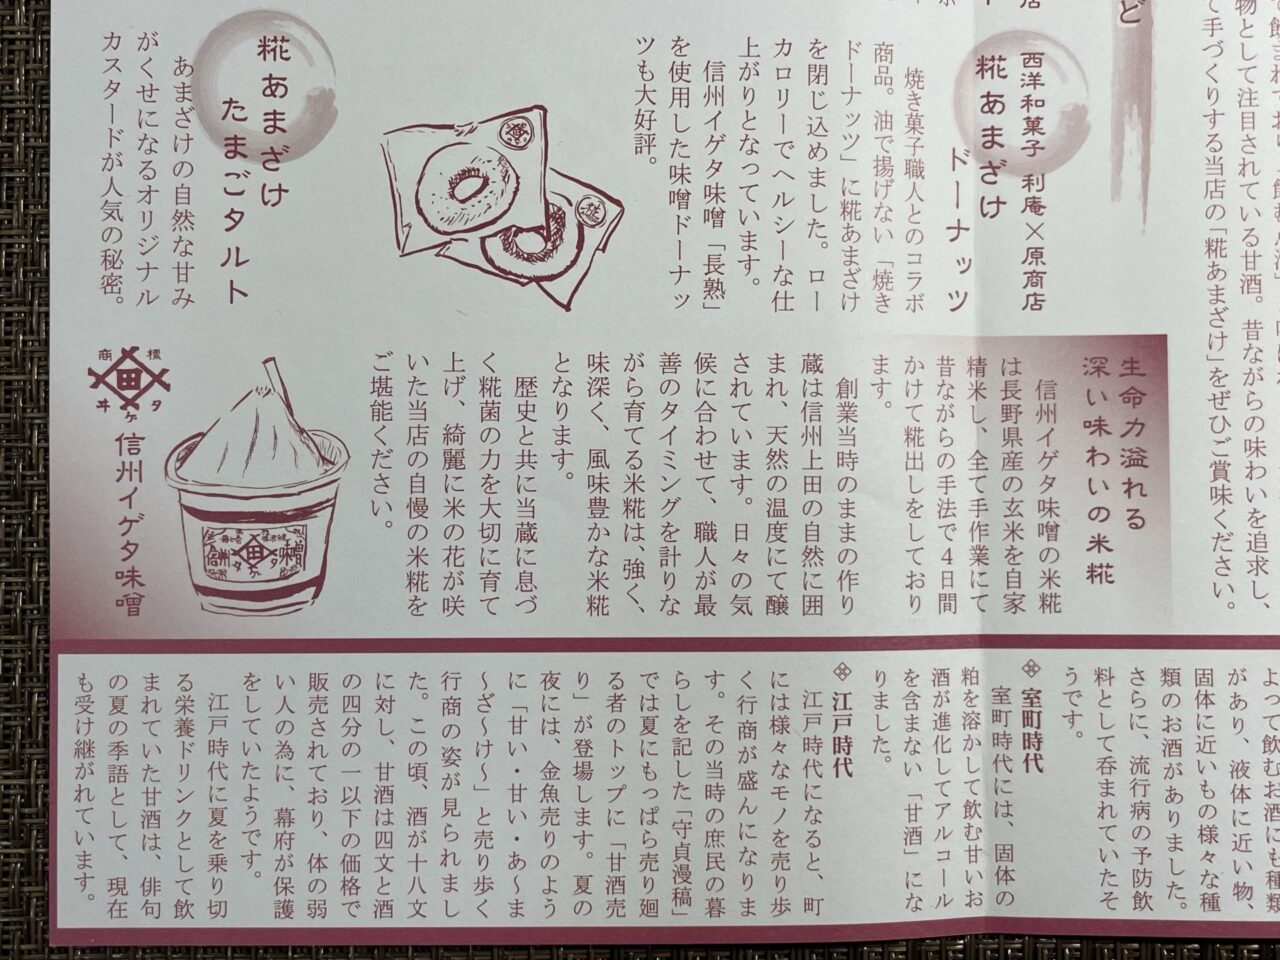 ど
物として注目されている甘酒。昔ながらの味わいを追求し、
て手づくりする当店の「糀あまざけ」をぜひご賞味ください。
西洋和菓子 利庵×原商店
糀あまざけ
ドーナッツ
焼き菓子職人とのコラボ
商品。油で揚げない「焼き
ドーナッツ」に糀あまざけ
を閉じ込めました。ロー
カロリーでヘルシーな仕
上がりとなっています。
信州イゲタ味噌「長熟」
を使用した味噌ドーナッ
ツも大好評。
糀あまざけ
たまごタルト
あまざけの自然な甘み
がくせになるオリジナル
カスタードが人気の秘密。
生命力溢れる
深い味わいの米糀
信州イゲタ味噌の米糀
は長野県産の玄米を自家
精米し、全て手作業にて
昔ながらの手法で4日間
かけて糀出しをしており
ます。
創業当時のままの作り
蔵は信州上田の自然に囲
まれ、天然の温度にて醸
されています。日々の気
候に合わせて、職人が最
善のタイミングを計りな
がら育てる米糀は、強く、
味深く、風味豊かな米糀
となります。
歴史と共に当蔵に息づ
く糀菌の力を大切に育て
上げ、綺麗に米の花が咲
いた当店の自慢の米糀を
ご堪能ください。
信州 味噌
商標
ヰゲタ
信州イゲタ味噌
よって飲むお酒にも種類
があり、液体に近い物、
固体に近いもの様々な種
類のお酒がありました。
さらに、流行病の予防飲
料として呑まれていたそ
うです。
室町時代
室町時代には、固体の
粕を溶かして飲む甘いお
酒が進化してアルコール
を含まない「甘酒」にな
りました。
江戸時代
江戸時代になると、町
には様々なモノを売り歩
く行商が盛んになりま
す。その当時の庶民の暮
らしを記した「守貞漫稿」
では夏にもっぱら売り廻
る者のトップに「甘酒売
り」が登場します。夏の
夜には、金魚売りのよう
に「甘い・甘い・あ〜ま
〜ざ〜け〜」と売り歩く
行商の姿が見られまし
た。この頃、酒が十八文
に対し、甘酒は四文と酒
の四分の一以下の価格で
販売されており、体の弱
い人の為に、幕府が保護
をしていたようです。
江戸時代に夏を乗り切
る栄養ドリンクとして飲
まれていた甘酒は、俳句
の夏の季語として、現在
も受け継がれています。